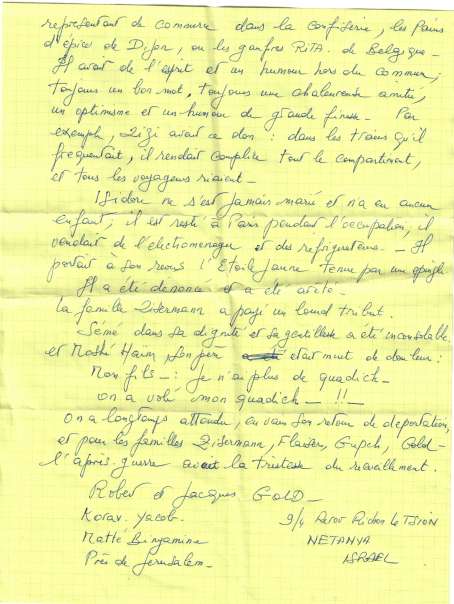 représentant de commerce dans la confiserie, les Pains
d'épices de Dijon, ou les gaufres RITA. de Belgique -
Il avait de l'esprit et un humour hors du commun,
toujours un bon mot, toujours une chaleureuse amitié,
un optimisme et un humour de grande finesse - Par
exemple, Zizi avait ce don : dans les trains qu'il
fréquentait, il rendait complice tout le compartiment,
et tous les voyageurs riaient -
Isidore ne s'est jamais marié et n'a eu aucun
enfant, il est resté à Paris pendant l'occupation, il
vendait de l'electromenager et des refrigerateurs - Il
portait à son revers l'Etoile Jaune tenue par une epingle
Il a été dénoncé et a été arêté -
la famille Zisermann a payé un lourd tribut.
Sémé dans sa dignité et sa gentillesse a été inconsolable
et Moshé Haim, son père était muet de douleur :
Mon fils - : Je n'ai plus de quadich -
on a volé mon quadich - !! -
On a longtemps attendu, en vain son retour de deportation,
et pour les familles Zisermann, Gupch, Gold -
l'après-guerre avait la tristesse du
Robert et Jacques GOLD -
Korav. Yacob. 9/4 Richon Le TSION
Matté Binyamine NETANYA
Près de Jerusalem - ISRAEL